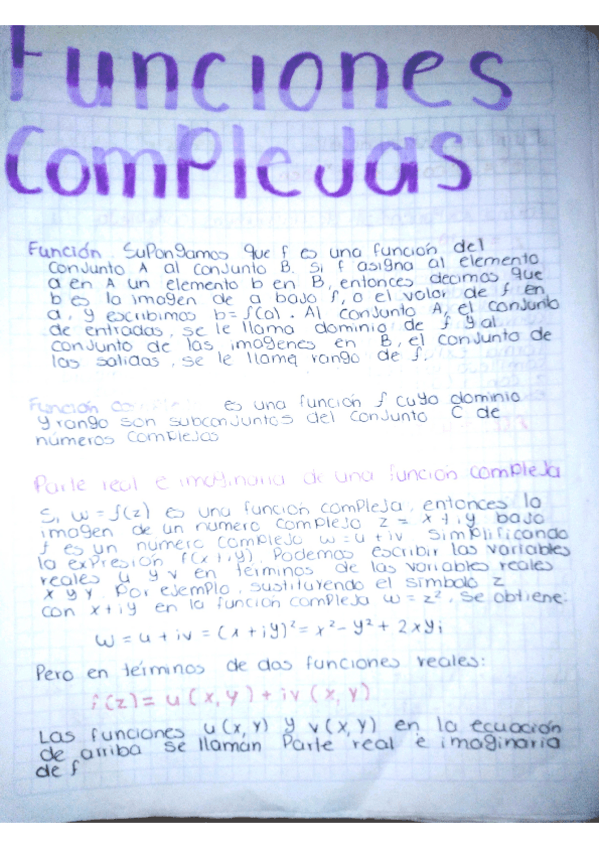 Funciones
Complejas
Función. Supongamos que f es una función del
conjunto A al conjunto B. Si f asigna al elemento
a en A un elemento b en B, entonces decimos que
b es la imagen de a bajo f, o el valor de f en
a, y escribimos b=f(a). Al conjunto A, el conjunto
de entradas, se le llama dominio de f y al
conjunto de las imagenes en B, el conjunto de
las salidas, se le llama rango de f.
Función es una función f cuyo dominio
y rango son subconjuntos del conjunto C de
números complejos
Parte real e imaginaria de una función compleja
Si w=f(z) es una función compleja, entonces la
imagen de un numero complejo z = x+iy bajo
f es un numero complejo w=u+iv. Simplificando
la expresión f(x+iy). Podemos escribir las variables
reales u y v en términos de las variables reales
x y y. Por ejemplo, sustituyendo el símbolo z
con x+iy en la función compleja w=z², se obtiene:
w=u+iv=(x+iy)²=x²-y²+2xyi
Pero en términos de dos funciones reales:
f(z)=u(x,y)+iv(x,y)
Las funciones u(x,y) y v(x,y) en la ecuación
de arriba se llaman Parte real e imaginaria
de f